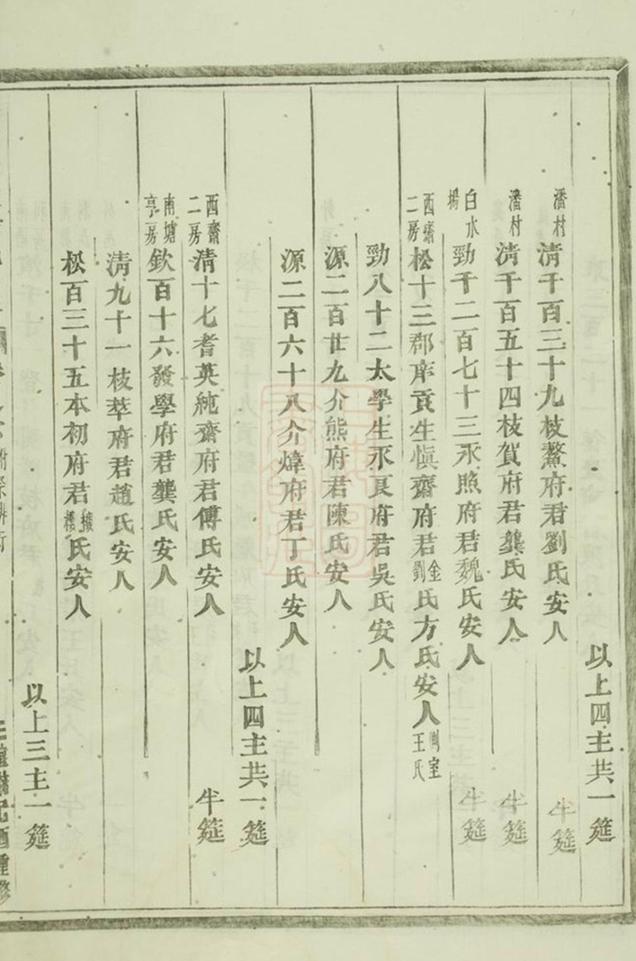 以上四主共一筵
潘村清千百三十九枝鰲府君劉氏安人 半筵
潘村清千百五十四枝賀府君龔氏安人 半筵
白水楊勁千二百七十三永照府君魏氏安人 半筵
西齋二房松十三郡庠貢生愼齋府君金劉氏方氏安人側室王氏
勁八十二太學生永良府君吳氏安人
源二百廿九介熊府君陳氏安人
源二百六十八介煒府君丁氏安人
以上四主共一筵
西齋二房清十七耆英純齋府君傅氏安人 半筵
南塘亨房欽百十六發學府君龔氏安人
清九十一枝萃府君趙氏安人
松百三十五本初府君樓氏安人
以上三主一筵